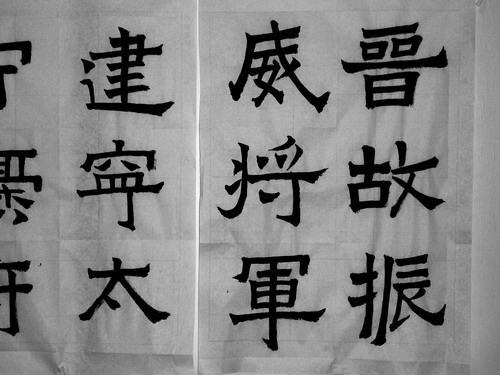 晉故振
威将軍
建寧太